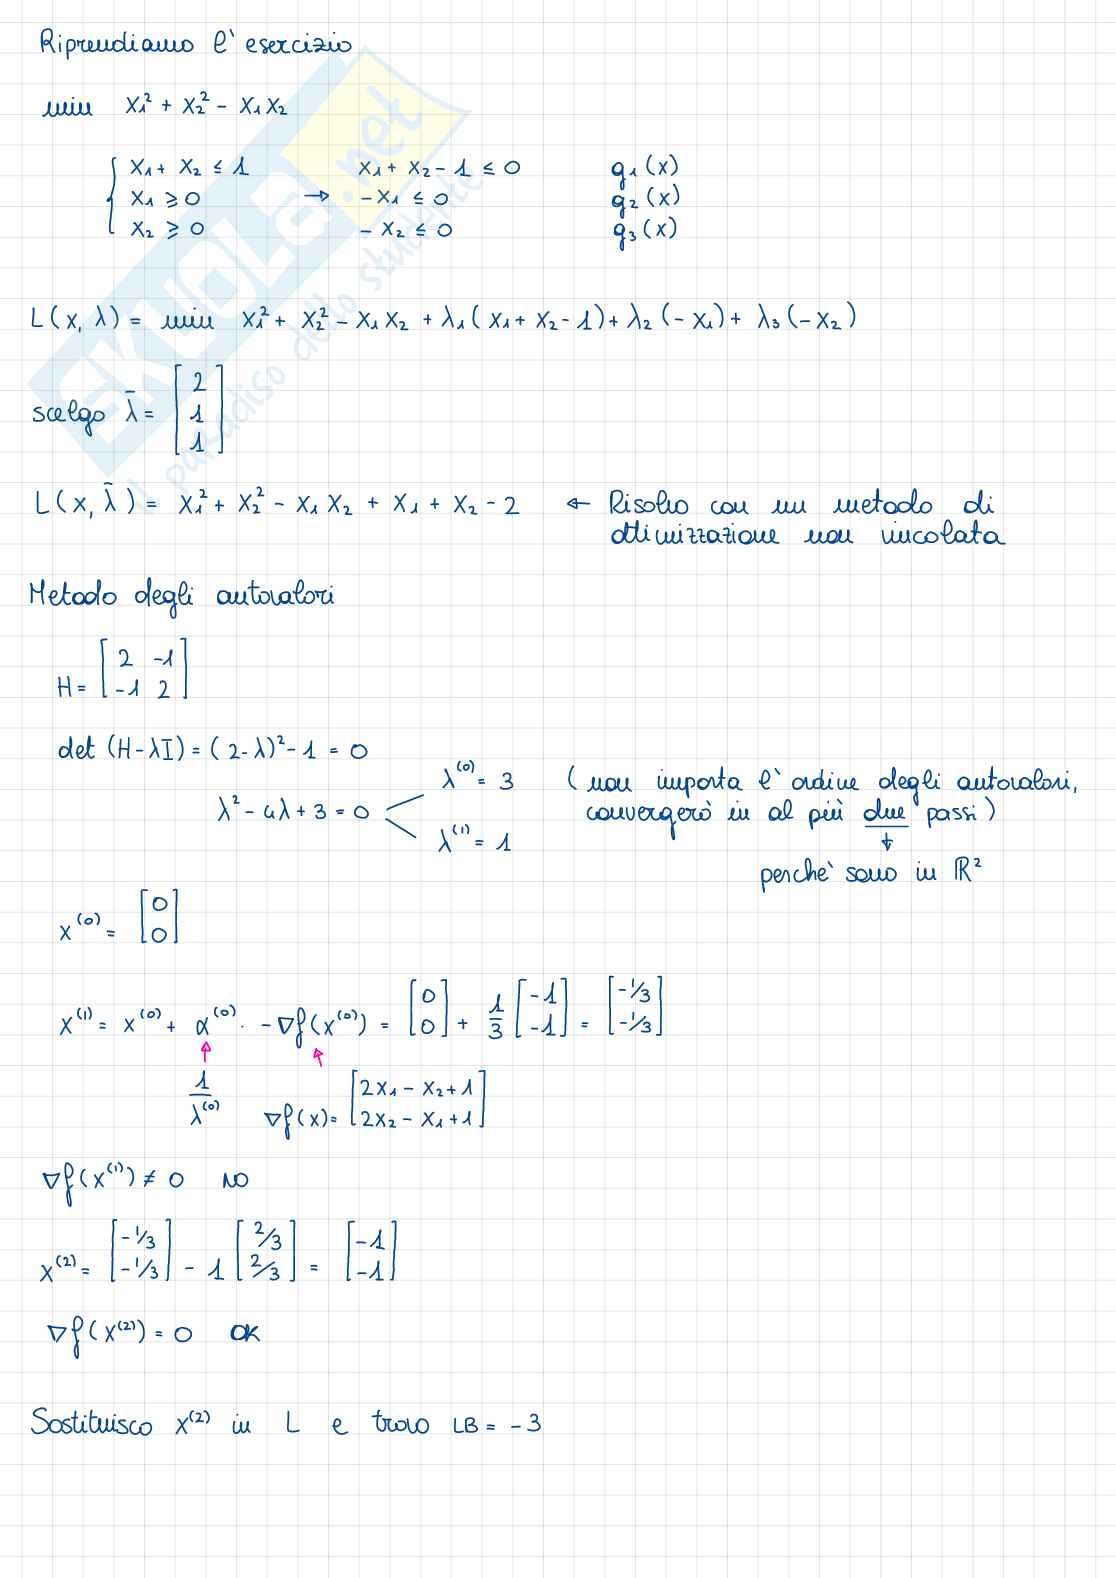 Riprendiamo l'esercizio
min x₁² + x₂² - x₁x₂
{ x₁ + x₂ ≤ 1 → x₁ + x₂ - 1 ≤ 0 g₁(x)
x₁ ≥ 0 -x₁ ≤ 0 g₂(x)
x₂ ≥ 0 -x₂ ≤ 0 g₃(x)
L(x, λ) = min x₁² + x₂² - x₁x₂ + λ₁(x₁ + x₂ - 1) + λ₂(-x₁) + λ₃(-x₂)
scelgo λ̄ = [2 1 1]
L(x, λ̄) = x₁² + x₂² - x₁x₂ + x₁ + x₂ - 2 ← Risolvo con un metodo di
ottimizzazione non vincolata
Metodo degli autovalori
H = [2 -1
-1 2]
det (H - λI) = (2 - λ)² - 1 = 0
λ² - 4λ + 3 = 0
λ⁽⁰⁾ = 3
λ⁽¹⁾ = 1
(non importa l'ordine degli autovalori,
convergerò in al più due passi)
perchè sono in ℝ²
x⁽⁰⁾ = [0 0]
x⁽¹⁾ = x⁽⁰⁾ + α⁽⁰⁾ · -∇f(x⁽⁰⁾) = [0 0] + 1/3 [-1 -1] = [-1/3 -1/3]
1/λ⁽⁰⁾
∇f(x) = [2x₁ - x₂ + 1
2x₂ - x₁ + 1]
∇f(x⁽¹⁾) ≠ 0 NO
x⁽²⁾ = [-1/3 -1/3] - 1 [2/3 2/3] = [-1 -1]
∇f(x⁽²⁾) = 0 OK
Sostituisco x⁽²⁾ in L e trovo LB = -3
SKUOLA.net
il paradiso dello studente